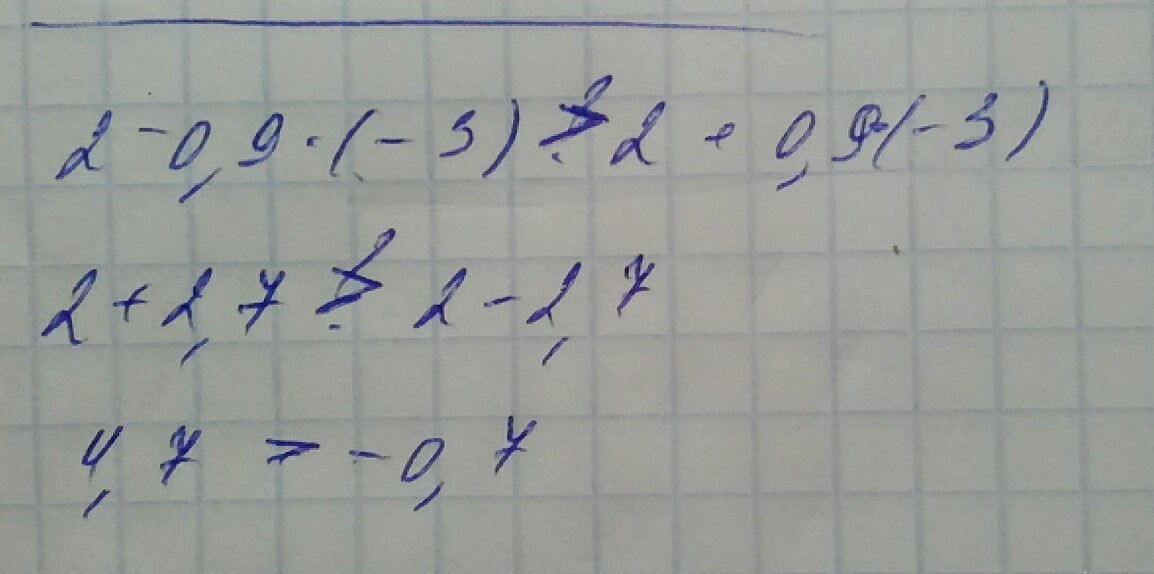 2 - 0,9 · (-3) > 2 + 0,9 · (-3)
2 + 2,7 > 2 - 2,7
4,7 > -0,7